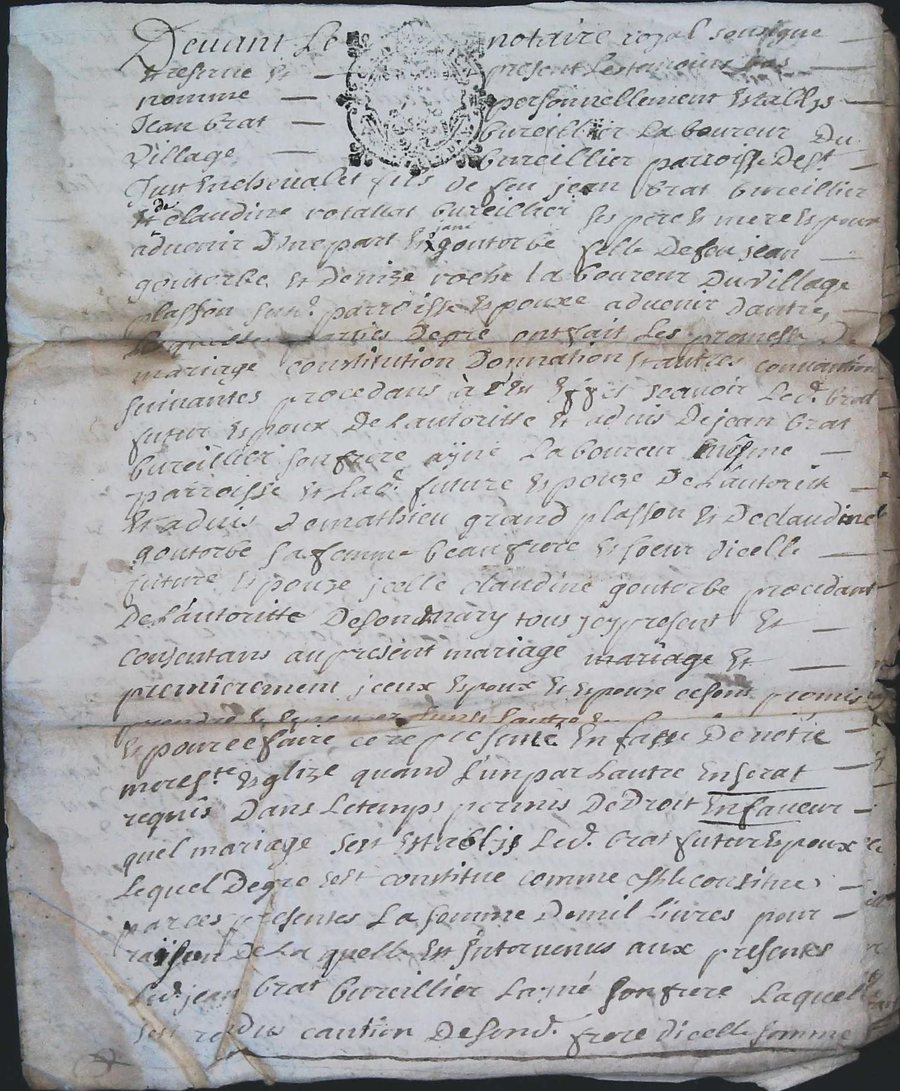 Devant Le notaire royal soubsigne
present Les tamoins bas
nomme personnellement establys
Jean brat bureillier Laboureur Du
village bureillier parroisse de St
Just Enchevalet fils de feu jean brat bureillier
et de claudine bureillier ses pere et mere Espoux
advenir D'une part et jane goutorbe fille De feu jean
goutorbe et Denize roche laboureur Du village
plasson parroisse Espouze advenir Dautre,
Lesquelles parties Degré ont fait Les promesse De
mariage constitution Donnation et autres convantions
suivantes procedans à Scavoir Led. brat
futur Espoux De Lautoritte et advis De jean brat
bureillier son frere ayné Laboureur mesme
parroisse et Lad. future Espouze De Lautoritte
Et advis De mathieu grand plasson et De claudine
goutorbe sa femme beau frere et soeur dicelle
future Espouze jcelle claudine goutorbe procedant
De Lautoritte De sond mary tous jcy present Et
consentans au present mariage mariage Et
premierement jceux Espoux et Espouze ce sont promis
prendre et Espouzer L'autre
Espour ce faire ce representé En face De nôtre
mere ste Esglize quand L'un par Lautre En serat
requis Dans Le temps permis De Droit En faveur
quel mariage sest Establys Led. brat futur Espoux
Lequel Degre sest constitue comme il se constitue
par ces presentes La somme De mil Livres pour
raison De La quelle Est Intervenus aux presentes
Led. jean brat bureillier Layné son frere Laquelle
sest randu caution De sond. frere dicelle somme